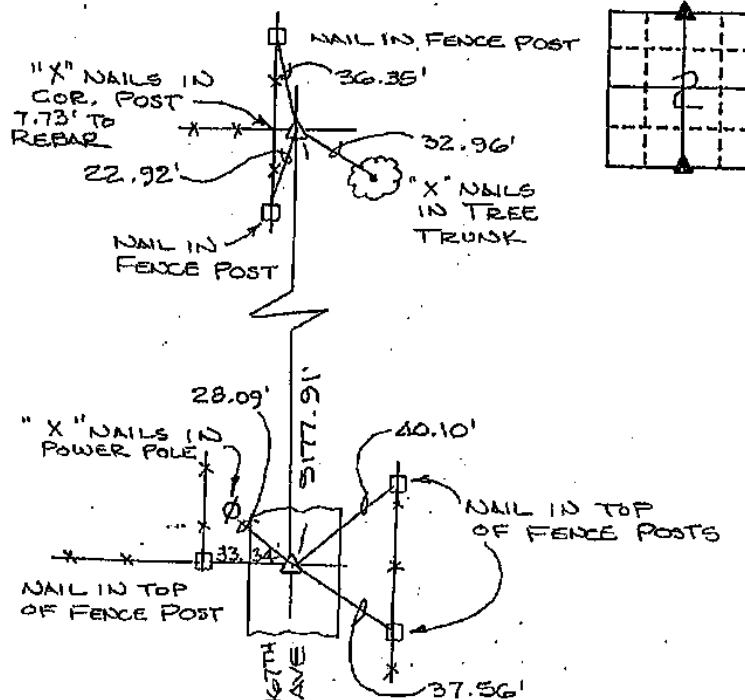 NAIL IN FENCE POST
"X" NAILS IN
COR. POST
7.73' TO
REBAR
36.35'
2
22.92'
32.96'
"X" NAILS
IN TREE
TRUNK
NAIL IN
FENCE POST
28.09'
5177.91'
40.10'
"X" NAILS IN
POWER POLE
NAIL IN TOP
OF FENCE POSTS
33.34'
NAIL IN TOP
OF FENCE POST
67TH
AVE
37.56'